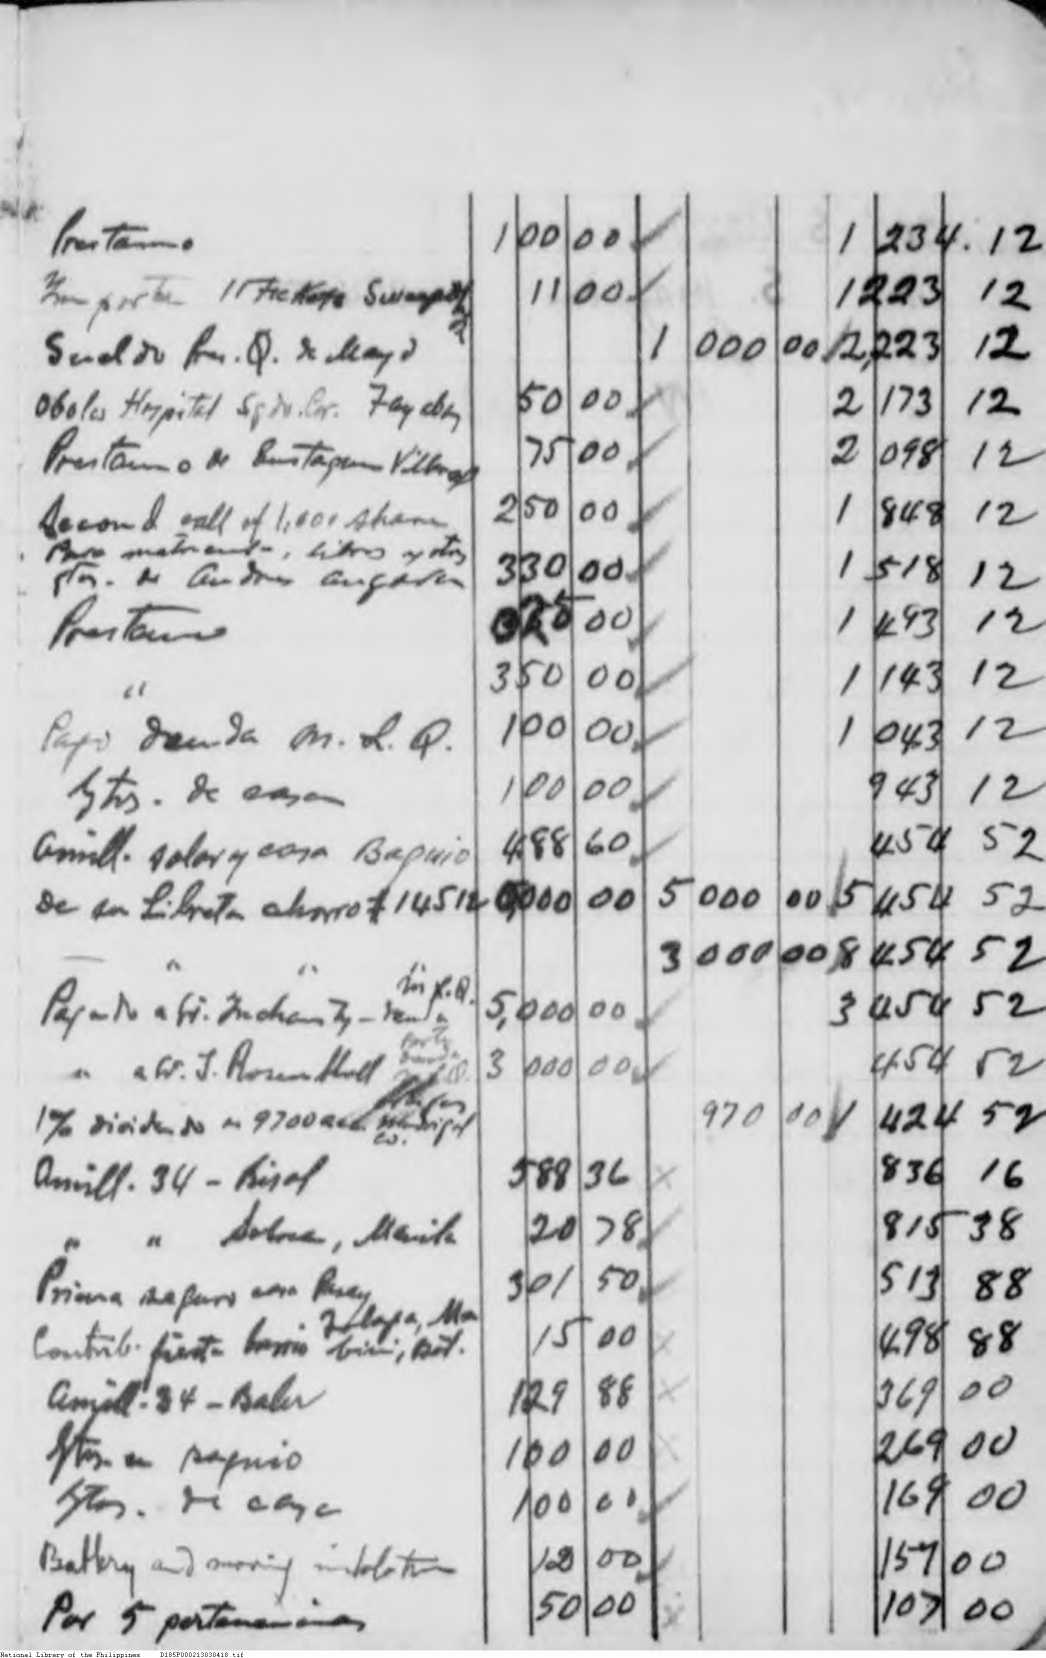 Prestamo 100 00 1 234. 12
Importe 11 Tickets 11 00 1223 12
Sueldo Pres. Q. de Mayo 1 000 00 2,223 12
Obolos Hospital Sgdo. Cor. Tayabas 50 00 2 173 12
Prestamo de 75 00 2 098 12
Second call of 1,000 shares 250 00 1 848 12
Para matricula, libros y otros
gtos. de Andres Angara 330 00 1 518 12
Prestamo 25 00 1 493 12
" 350 00 1 143 12
Pago deuda M. L. Q. 100 00 1 043 12
Gtos. de casa 100 00 943 12
Amill. solar y casa Baguio 488 60 454 52
De su Libreta ahorro # 14512 000 00 5 000 00 5 454 52
" " 3 000 00 8 454 52
Pagado a Sr. Inchausty - deuda 5,000 00 3 454 52
" a Sr. J. Rosenthall 3 000 00 454 52
1% dividendo 9700 Madrigal Co. 970 00 1 424 52
Amill. 34 - Rizal 588 36 836 16
" " Solves, Manila 20 78 815 38
Prima seguro casa Pasay 301 50 513 88
Contrib. fiesta barrio 15 00 498 88
Amill. 34 - Baler 129 88 369 00
Gtos. en Baguio 100 00 269 00
Gtos. de casa 100 00 169 00
Battery and moving 12 00 157 00
Por 5 pertenencias 50 00 107 00
National Library of the Philippines D185P000213030418.tif